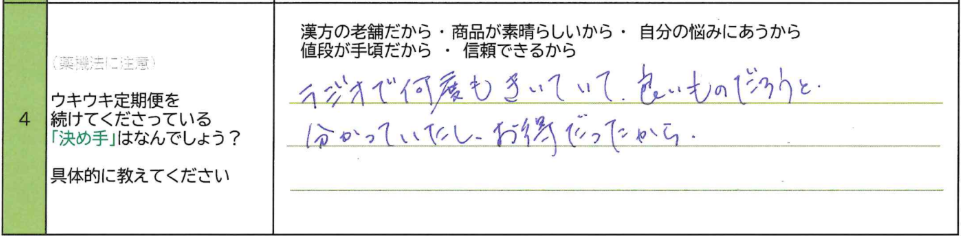 (薬機法に注意)
4
ウキウキ定期便を
続けてくださっている
「決め手」はなんでしょう？
具体的に教えてください
漢方の老舗だから・商品が素晴らしいから・ 自分の悩みにあうから
値段が手頃だから ・ 信頼できるから
ラジオで何度もきいていて、良いものだろうと、
分かっていたし、お得だったから、